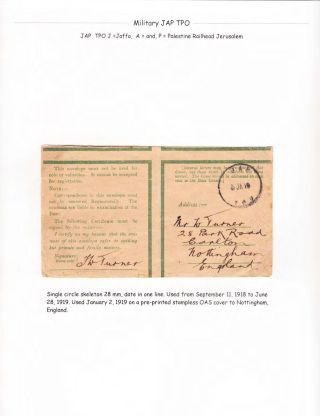 Military JAP TPO
JAP, TPO J =Jaffa, A = and, P = Palestine Railhead Jerusalem
This envelope must not be used for
coin or valuables. It cannot be accepted
for registration.
Note:—
Correspondence in this envelope need
not be censored Regimentally. The
contents are liable to examination at the
Base.
The following Certificate must be
signed by the writer:—
I certify on my honour that the con-
tents of this envelope refer to nothing
but private and family matters.
Signature
Name only
H Turner
Address:—
Mr W Turner
28 Park Road
Carlton
Nottingham
England
Single circle skeleton 28 mm, date in one line. Used from September 11, 1918 to June
28, 1919. Used January 2, 1919 on a pre-printed stampless OAS cover to Nottingham,
England.